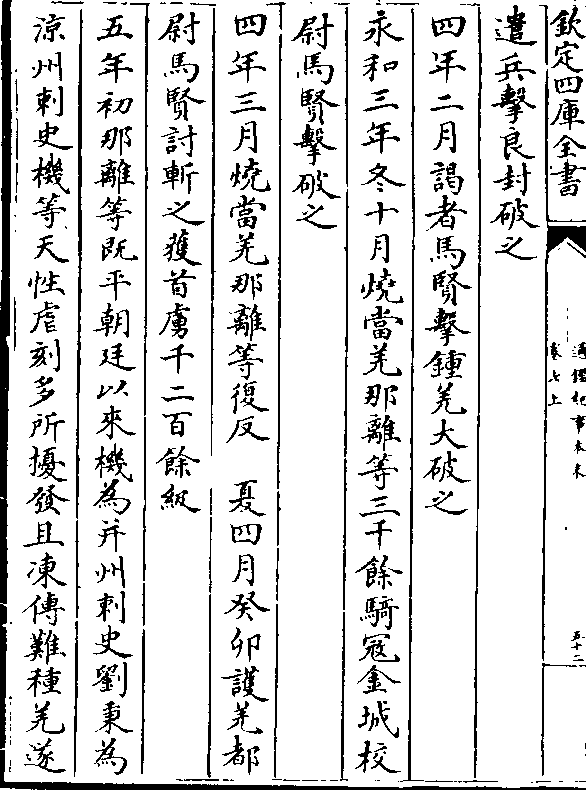 欽定四庫全書
通鑑紀事本末
卷七上
五十二
遣兵擊良封破之
四年二月謁者馬賢擊鍾羌大破之
永和三年冬十月燒當羌那離等三千餘騎寇金城校
尉馬賢擊破之
四年三月燒當羌那離等復反　夏四月癸卯護羌都
尉馬賢討斬之獲首虜千二百餘級
五年初那離等既平朝廷以來機為并州刺史劉秉為
涼州刺史機等天性虐刻多所擾發且凍傅難種羌遂